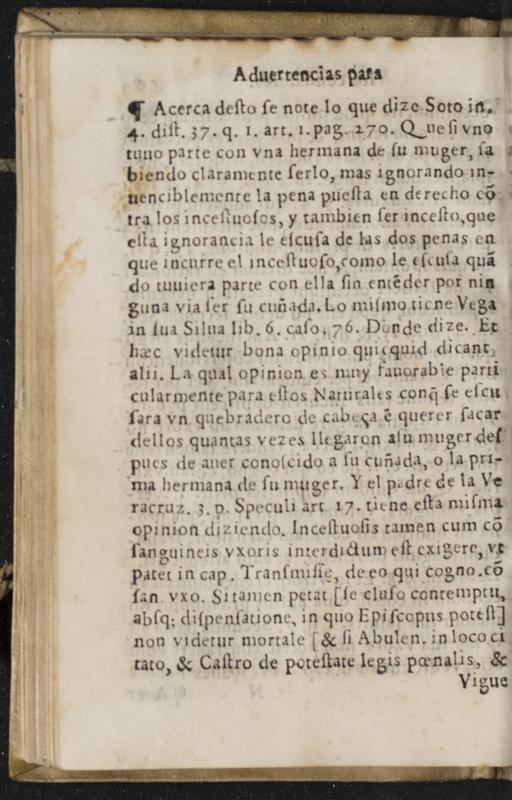 Aduertencias para
¶ Acerca desto se note lo que dize Soto in.
4. dist. 37. q. 1. art. 1. pag. 270. Que si vno
tuuo parte con vna hermana de su muger, sa
biendo claramente serlo, mas ignorando in-
uenciblemente la pena puesta en derecho cõ
tra los incestuosos, y tambien ser incesto, que
esta ignorancia le escusa de las dos penas en
que incurre el incestuoso, como le escusa quã
do tuuiera parte con ella sin entẽder por nin
guna via ser su cuñada. Lo mismo tiene Vega
in sua Silua lib. 6. caso, 76. Donde dize. Et
hæc videtur bona opinio quicquid dicant,
alii. La qual opinion es muy fauorable parti
cularmente para estos Naturales conq̃ se escu
sara vn quebradero de cabeça ẽ querer sacar
dellos quantas vezes llegaron asu muger des
pues de auer conoscido a su cuñada, o la pri-
ma hermana de su muger. Y el padre de la Ve
racruz. 3. p. Speculi art. 17. tiene esta misma
opinion diziendo. Incestuosis tamen cum cõ
sanguineis vxoris interdictum est exigere, vt
patet in cap. Transmisse, de eo qui cogno. cõ
san. vxo. Si tamen petat [se cluso contemptu,
absq; dispensatione, in quo Episcopus potest]
non videtur mortale [& si Abulen. in loco ci
tato, & Castro de potestate legis pœnalis, &
Vigue